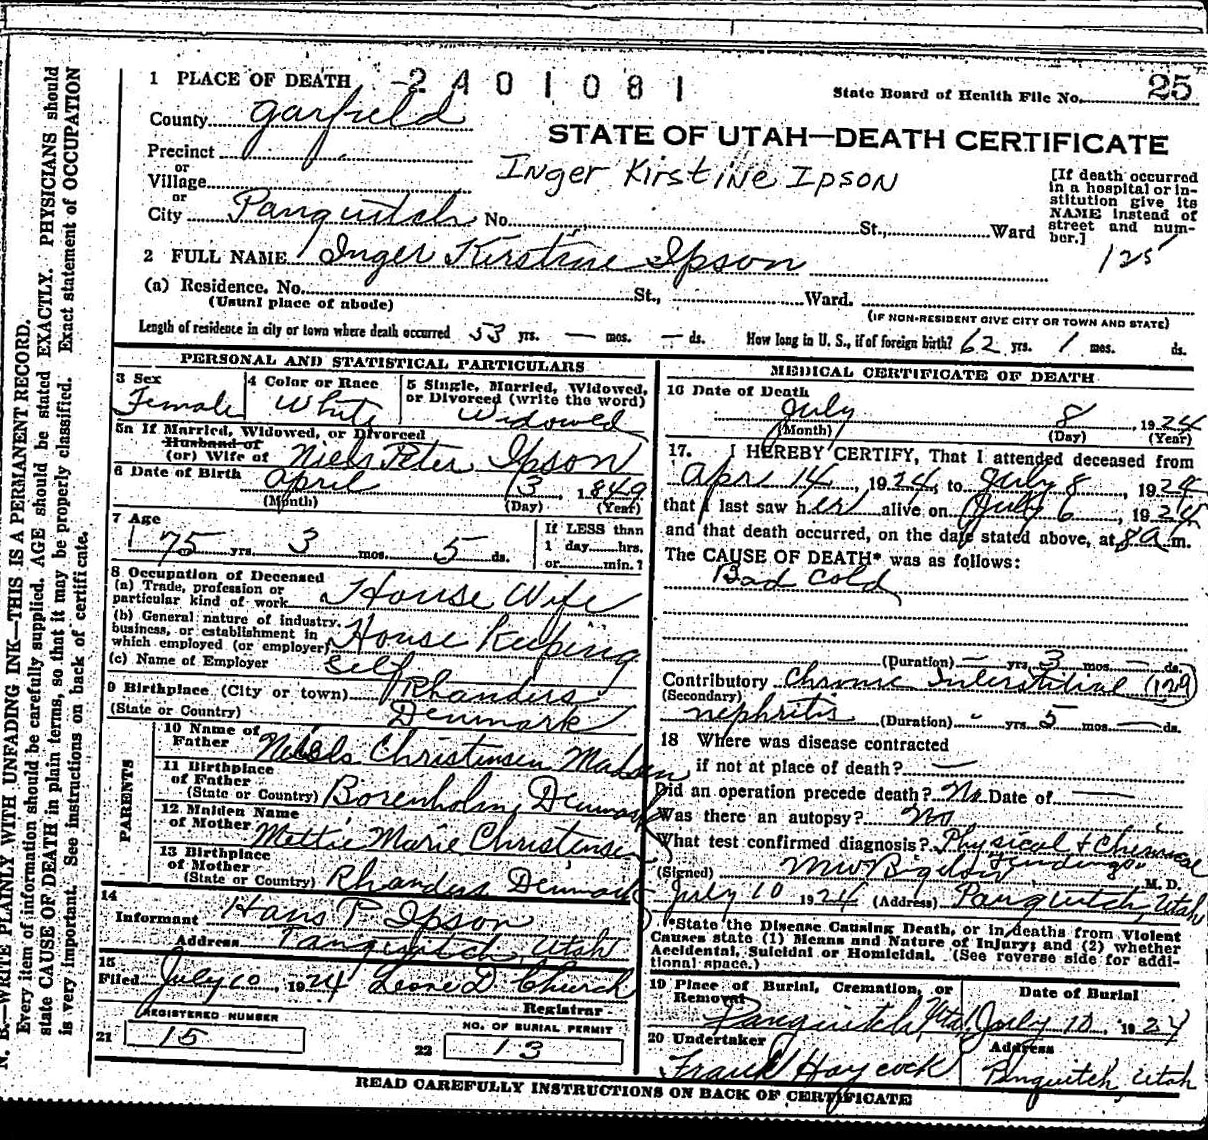 2401081
State Board of Health File No. 25
1 PLACE OF DEATH
County Garfield
STATE OF UTAH—DEATH CERTIFICATE
Precinct
or
Village
Inger Kirstine Ipson
[If death occurred
in a hospital or in-
stitution give its
NAME instead of
street and num-
ber.]
or
City Panguitch No. St., Ward
125
2 FULL NAME Inger Kirstine Ipson
(a) Residence. No. St., Ward.
(Usual place of abode)
(IF NON-RESIDENT GIVE CITY OR TOWN AND STATE)
Length of residence in city or town where death occurred 53 yrs. — mos. — ds. How long in U. S., if of foreign birth? 62 yrs. 1 mos. ds.
PERSONAL AND STATISTICAL PARTICULARS
3 Sex
Female
4 Color or Race
White
5 Single, Married, Widowed,
or Divorced (write the word)
Widowed
5a If Married, Widowed, or Divorced
Husband of
(or) Wife of Niels Peter Ipson
6 Date of Birth April 3, 1849
(Month) (Day) (Year)
7 Age
75 yrs. 3 mos. 5 ds.
If LESS than
1 day......hrs.
or......min.?
8 Occupation of Deceased
(a) Trade, profession or
particular kind of work House Wife
(b) General nature of industry,
business, or establishment in
which employed (or employer) House Keeping
(c) Name of Employer Self
9 Birthplace (City or town) Rhanders
(State or Country) Denmark
PARENTS
10 Name of
Father Neils Christensen Madsen
11 Birthplace
of Father
(State or Country) Borenholm, Denmark
12 Maiden Name
of Mother Mettie Marie Christensen
13 Birthplace
of Mother
(State or Country) Rhanders Denmark
14
Informant Hans P. Ipson
Address Panguitch, Utah
15
Filed July 10, 1924 Leone D. Church
Registrar
REGISTERED NUMBER
21 15
NO. OF BURIAL PERMIT
22 13
MEDICAL CERTIFICATE OF DEATH
16 Date of Death
July 8, 1924
(Month) (Day) (Year)
17. I HEREBY CERTIFY, That I attended deceased from
Apr 14, 1924, to July 8, 1924
that I last saw her alive on July 6, 1924
and that death occurred, on the date stated above, at 8 a m.
The CAUSE OF DEATH* was as follows:
Bad Cold
(Duration) — yrs. 3 mos. — ds.
Contributory Chronic Interstitial (129)
(Secondary)
nephritis (Duration) - yrs. 5 mos. — ds.
18 Where was disease contracted
if not at place of death? —
Did an operation precede death? No Date of —
Was there an autopsy? No
What test confirmed diagnosis? Physical & Chemical
Findings
(Signed) M W Bigelow M. D.
July 10 1924 (Address) Panguitch, Utah
*State the Disease Causing Death, or in deaths from Violent
Causes state (1) Means and Nature of Injury; and (2) whether
Accidental, Suicidal or Homicidal. (See reverse side for addi-
tional space.)
19 Place of Burial, Cremation, or
Removal
Panguitch Utah
Date of Burial
July 10, 1924
20 Undertaker
Frank Haycock
Address
Panguitch, Utah
READ CAREFULLY INSTRUCTIONS ON BACK OF CERTIFICATE
N. B.—WRITE PLAINLY WITH UNFADING INK—THIS IS A PERMANENT RECORD.
Every item of information should be carefully supplied. AGE should be stated EXACTLY. PHYSICIANS should
state CAUSE OF DEATH in plain terms, so that it may be properly classified. Exact statement of OCCUPATION
is very important. See instructions on back of certificate.